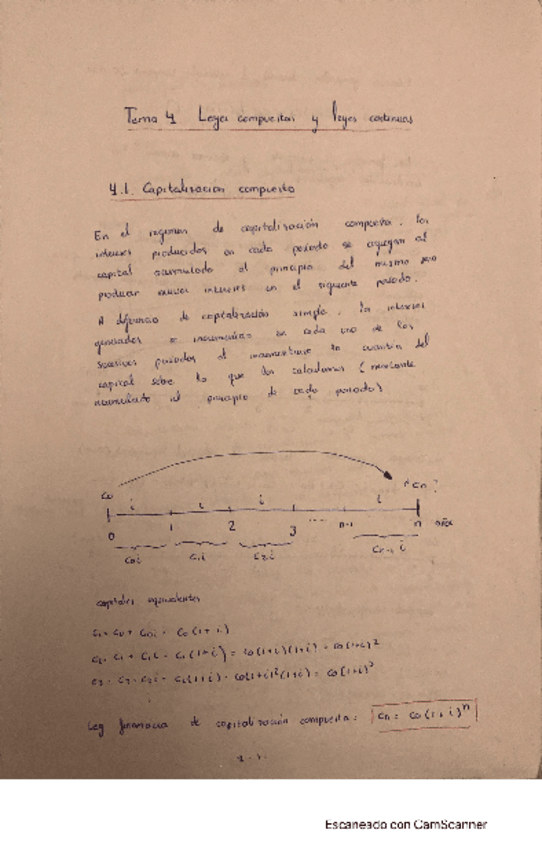 Tema 4 Leyes compuestas y leyes continuas
4.1. Capitalización compuesta
En el regimen de capitalización compuesta, los
intereses producidos en cada periodo se agregan al
capital acumulado al principio del mismo para
producir nuevos intereses en el siguiente periodo.
A diferencia de capitalización simple, los intereses
generados se incrementan en cada uno de los
sucesivos periodos al incrementarse la cuantía del
capital sobre la que los calculamos (montante
acumulado al principio de cada periodo)
C0 ¿Cn?
i i i i
0 1 2 3 .... n-1 n años
C0i C1i C2i Cn-1 i
capitales equivalentes
C1 = C0 + C0i = C0(1+i)
C2 = C1 + C1i = C1(1+i) = C0(1+i)(1+i) = C0(1+i)²
C3 = C2 + C2i = C2(1+i) = C0(1+i)²(1+i) = C0(1+i)³
Ley financiera de capitalización compuesta: Cn = C0(1+i)ⁿ
Escaneado con CamScanner